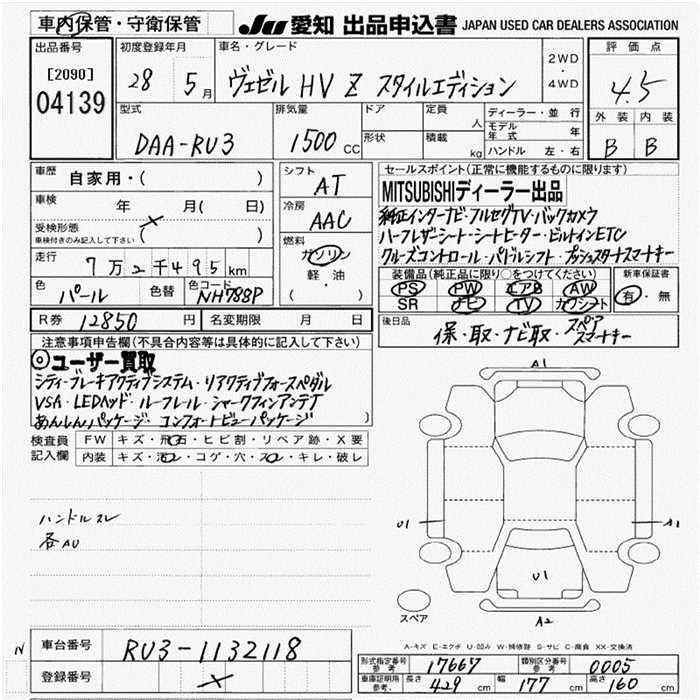 車内保管・守衛保管
JU 愛知 出品申込書 JAPAN USED CAR DEALERS ASSOCIATION
出品番号
[2090]
04139
初度登録年月
28 5月
車名・グレード
ヴェゼル HV Z スタイルエディション
2WD
・
4WD
評価点
4.5
外装 内装
B B
型式
DAA-RU3
排気量
1500 CC
ドア
形状
定員
人
積載
kg
ディーラー・並行
モデル年式 年
ハンドル 左・右
車歴 自家用・( )
車検 年 月( 日)
受検形態
車検付きのみ記入して下さい ( × )
走行 7万2千495km
色 パール 色替 色コード NH788P
シフト
AT
冷房
AAC
燃料
ガソリン
軽・油
( )
セールスポイント(正常に機能するものに限ります)
MITSUBISHIディーラー出品
純正インターナビ・フルセグTV・バックカメラ
ハーフレザーシート・シートヒーター・ビルトインETC
クルーズコントロール・パドルシフト・プッシュスタートスマートキー
装備品(純正品に限り○をつけてください)
PS PW エアB AW
SR ナビ TV カワシート
新車保証書
有・無
R券 12850 円 名変期限 月 日
後日品 保・取・ナビ取・スペアスマートキー
注意事項申告欄(不具合内容等は具体的に記入して下さい)
◎ユーザー買取
シティーブレーキアクティブシステム・リアクティブフォースペダル
VSA・LEDヘッド・ルーフレール・シャークフィンアンテナ
あんしんパッケージ・コンフォートビューパッケージ )
検査員記入欄
FW キズ・飛石・ヒビ割・リペア跡・X要
内装 キズ・汚レ・コゲ・穴・スレ・キレ・破レ
ハンドルスレ
各AU
A1
U1
A1
U1
A2
スペア
A-キズ E-エクボ U-凹み W-補修跡 S-サビ C-腐食 XX-交換済
N
車台番号 RU3-1132118
登録番号 ×
形式指定番号参考 17667 類別区分番号参考 0005
車庫証明用参考 長さ 429 cm 幅 177 cm 高さ 160 cm